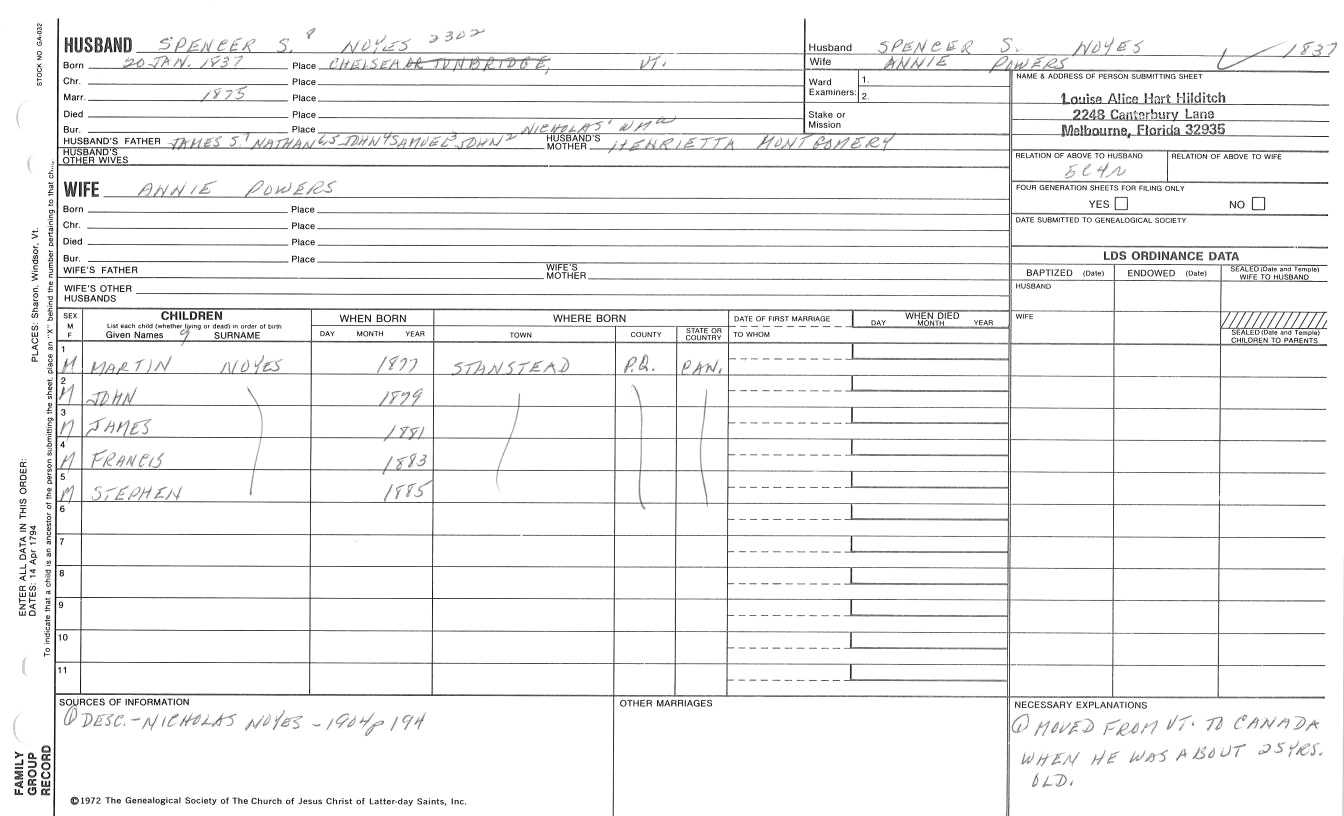 STOCK NO GA-032
HUSBAND SPENCER S.8 NOYES 2302
Born 20 JAN. 1837 Place CHELSEA OR TUNBRIDGE, VT.
Chr. Place
Marr. 1875 Place
Died Place
Bur. Place
NICHOLAS' WMa
HUSBAND'S FATHER JAMES S.7 NATHAN6,5 JOHN4 SAMUEL3 JOHN2 HUSBAND'S MOTHER HENRIETTA MONTGOMERY
HUSBAND'S OTHER WIVES
Husband SPENCER S. NOYES 1837
Wife ANNIE POWERS
Ward Examiners: 1. 2.
Stake or Mission
NAME & ADDRESS OF PERSON SUBMITTING SHEET
Louise Alice Hart Hilditch
2248 Canterbury Lane
Melbourne, Florida 32935
RELATION OF ABOVE TO HUSBAND RELATION OF ABOVE TO WIFE
5C4R
FOUR GENERATION SHEETS FOR FILING ONLY
YES NO
DATE SUBMITTED TO GENEALOGICAL SOCIETY
WIFE ANNIE POWERS
Born Place
Chr. Place
Died Place
Bur. Place
WIFE'S FATHER WIFE'S MOTHER
WIFE'S OTHER HUSBANDS
LDS ORDINANCE DATA
BAPTIZED (Date) ENDOWED (Date) SEALED (Date and Temple) WIFE TO HUSBAND
HUSBAND
WIFE
SEALED (Date and Temple) CHILDREN TO PARENTS
SEX M F
CHILDREN
List each child (whether living or dead) in order of birth
Given Names 9 SURNAME
WHEN BORN
DAY MONTH YEAR
WHERE BORN
TOWN COUNTY STATE OR COUNTRY
DATE OF FIRST MARRIAGE
TO WHOM
WHEN DIED
DAY MONTH YEAR
1 M MARTIN NOYES 1877 STANSTEAD P.Q. CAN.
2 M JOHN 1879
3 M JAMES 1881
4 M FRANCIS 1883
5 M STEPHEN 1885
6
7
8
9
10
11
SOURCES OF INFORMATION
① DESC.-NICHOLAS NOYES - 1904 p 194
OTHER MARRIAGES
NECESSARY EXPLANATIONS
① MOVED FROM VT. TO CANADA
WHEN HE WAS ABOUT 25 YRS.
OLD.
©1972 The Genealogical Society of The Church of Jesus Christ of Latter-day Saints, Inc.
FAMILY
GROUP
RECORD
ENTER ALL DATA IN THIS ORDER:
DATES: 14 Apr 1794
PLACES: Sharon, Windsor, Vt.
To indicate that a child is an ancestor of the person submitting the sheet, place an "X" behind the number pertaining to that ch...